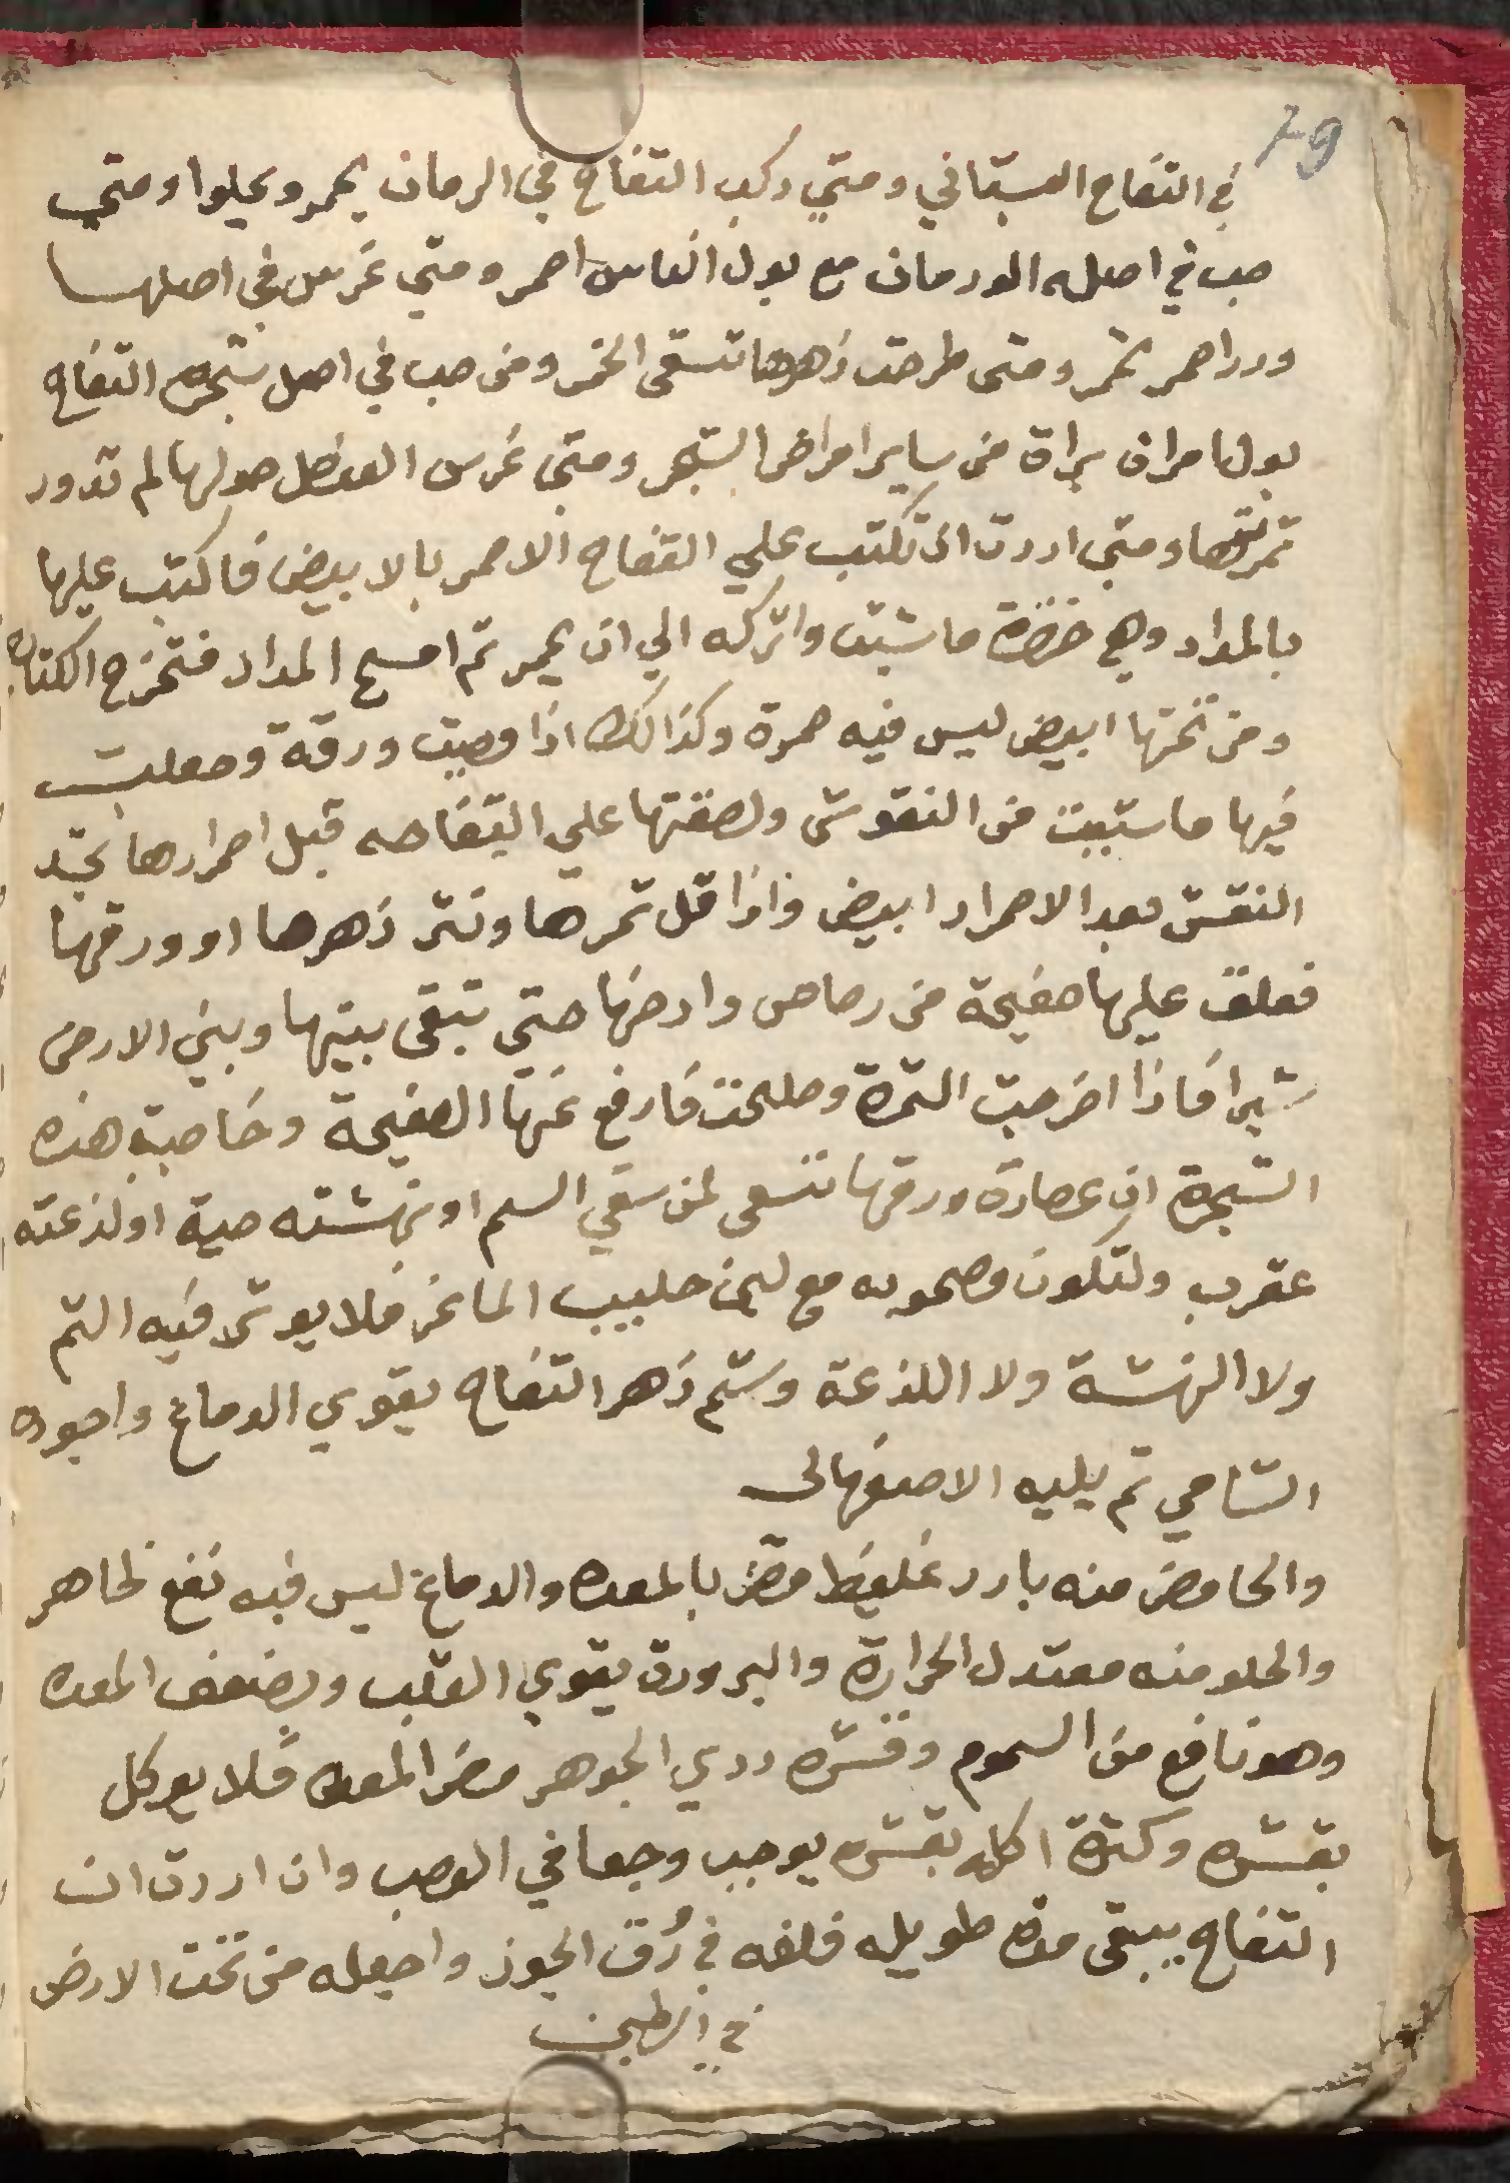 79
في التفاح البستاني ومتي ركب التفاح في الرمان يحمر ويحلوا ومتي
صب في اصله الوردمان مع بول الناس احمر ومتي غرس في اصلها
ورد احمر تحمر ومتى طرحت زهرها تسقى الخمر ومن صب في اصل شجرة التفاح
بول امراة براة من ساير امراض الشجر ومتى غرس العنصل حولها لم تدود
ثمرتها ومتى اردت ان تكتب علي التفاح الاحمر بالابيض فاكتب عليها
بالمداد وهي خضرة ما شيت واتركه الي ان يحمر ثم امسح المداد فتخرج الكتابة
ومن تحتها ابيض ليس فيه حمرة وكذالك اذا قصيت ورقة وجعلت
فيها ما شييت من النقوش ولصقتها علي التفاحه قبل احمرارها تجد
النقش بعد الاحمرار ابيض واذا قل ثمرها ونثر زهرها او ورقها
فعلق عليها صفيحة من رصاص وارخها حتي تبقى بينها وبين الارض
شبرا فاذا اخرجت الثمرة وصلحت فارفع عنها الصفيحة وخاصية هذه
الشجرة ان عصارة ورقها تسقى لمن سقي السم او نهشته حية او لذعته
عقرب ولتكون مع لبن حليب الماعز فلا يوثر فيه السم
ولا النهشة ولا اللذعة وشم زهر التفاح يقوي الدماغ واجوده
الشامي ثم يليه الاصفهاني
والحامض منه بارد غليظ مضر بالمعده والدماغ ليس فيه نفع ظاهر
والحلو منه معتدل الحرارة والبرودة يقوي القلب ويضعف المعده
وهو نافع من السموم وقشره ردي الجوهر مضر المعده فلا يوكل
بقشره وكثرة اكله بقشره يوجب وجعا في العصب وان اردت ان
التفاح يبقى مدة طويله فلفه في ورق الجوز واجعله من تحت الارض
في الطين